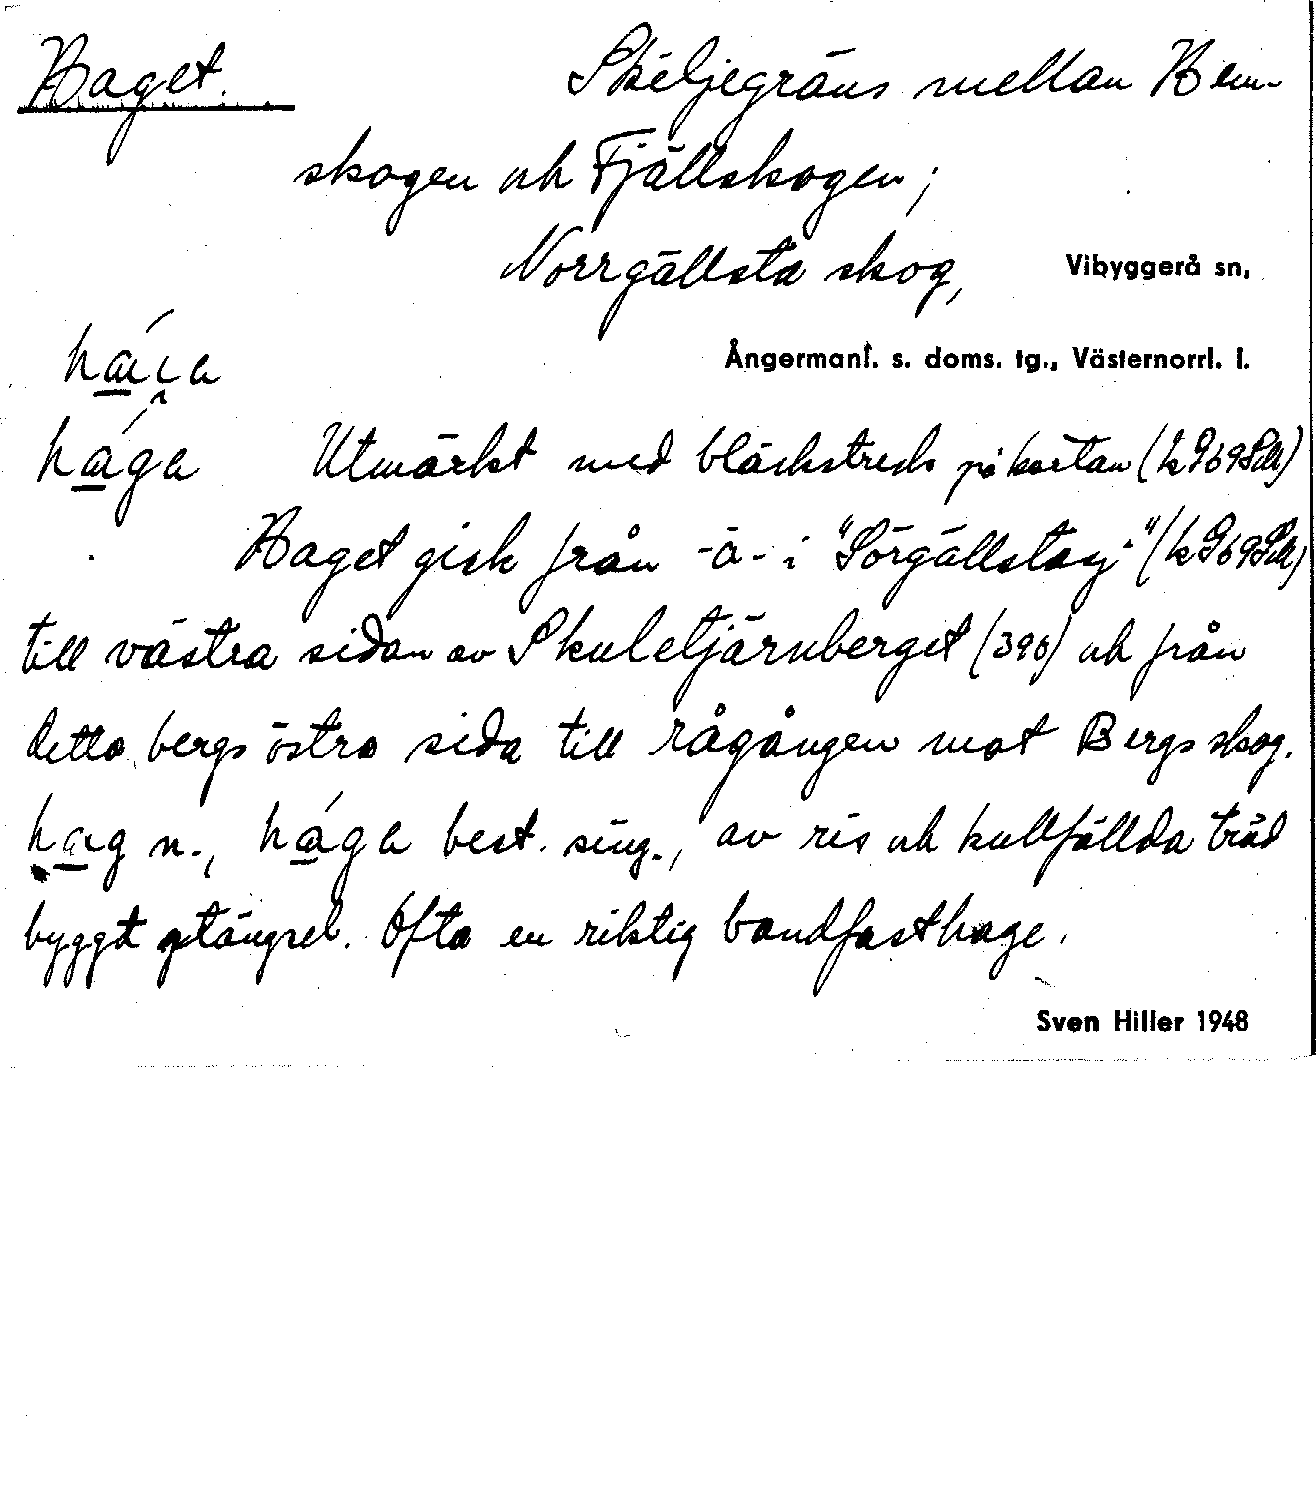 Haget. Skiljegräns mellan Hem-
skogen och Fjällskogen;
Norrgällsta skog, Vibyggerå sn,
Ångermanl. s. doms. tg., Västernorrl. l.
hága Utmärkt med bläckstreck på kartan
Haget gick från -ä- i "Sörgällstasj-"
till västra sidan av Skuletjärnberget (396) och från
detta bergs östra sida till rågången mot Bergs skog.
hag n., hága best. sing., av ris och kullfällda träd
byggt stängsel. Ofta en riktig bandfasthage.
Sven Hiller 1948